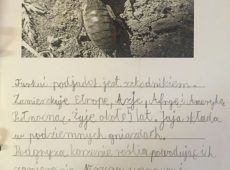 Turkuć podjadek jest szkodnikiem.
Zamieszkuje Europę, Azję, Afrykę i Amerykę
Północną. Żyje około 1 lat. Jaja składa
w podziemnych gniazdach.
Podgryza korzenie roślin powodując ich